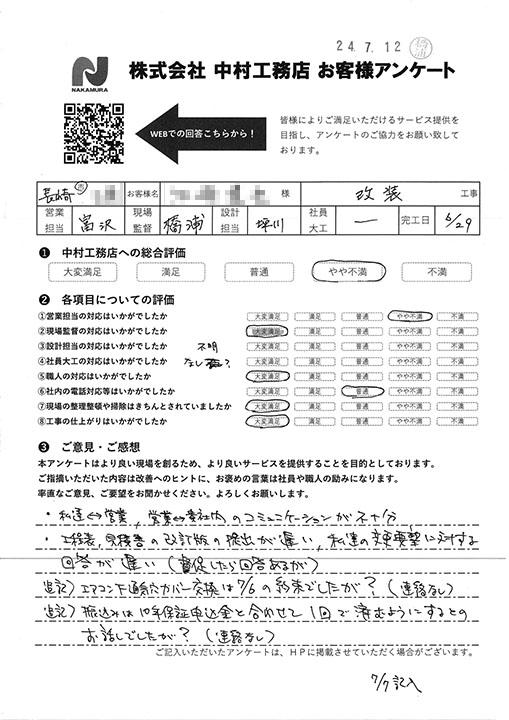 24.7.12
株式会社 中村工務店 お客様アンケート
NAKAMURA
WEBでの回答こちらから！
皆様によりご満足いただけるサービス提供を
目指し、アンケートのご協力をお願い致して
おります。
長崎 市 お客様名 様 改装 工事
営業担当 富沢 現場監督 橋浦 設計担当 坪川 社員大工 ― 完工日 6/29
❶ 中村工務店への総合評価
大変満足 満足 普通 やや不満 不満
❷ 各項目についての評価
①営業担当の対応はいかがでしたか 大変満足 満足 普通 やや不満 不満
②現場監督の対応はいかがでしたか 大変満足 満足 普通 やや不満 不満
③設計担当の対応はいかがでしたか 不明 大変満足 満足 普通 やや不満 不満
④社員大工の対応はいかがでしたか なし ？ 大変満足 満足 普通 やや不満 不満
⑤職人の対応はいかがでしたか 大変満足 満足 普通 やや不満 不満
⑥社内の電話対応等はいかがでしたか 大変満足 満足 普通 やや不満 不満
⑦現場の整理整頓や掃除はきちんとされていましたか 大変満足 満足 普通 やや不満 不満
⑧工事の仕上がりはいかがでしたか 大変満足 満足 普通 やや不満 不満
❸ ご意見・ご感想
本アンケートはより良い現場を創るため、より良いサービスを提供することを目的としております。
ご指摘いただいた内容は改善へのヒントに、お褒めの言葉は社員や職人の励みになります。
率直なご意見、ご要望をお聞かせください。よろしくお願いします。
・私達⇔営業、営業⇔貴社内のコミュニケーションが不十分
・工程表、見積書の改訂版の提出が遅い、私達の変更に対する
回答が遅い（督促したら回答あるが）
追記）エアコン下通気穴カバー交換は7/6の約束でしたが？（連絡なし）
追記）振込みは10年保証申込金と合わせて1回で済むようにするとの
お話しでしたが？（連絡なし）
ご記入いただいたアンケートは、HPに掲載させていただく場合がございます。
7/7記入